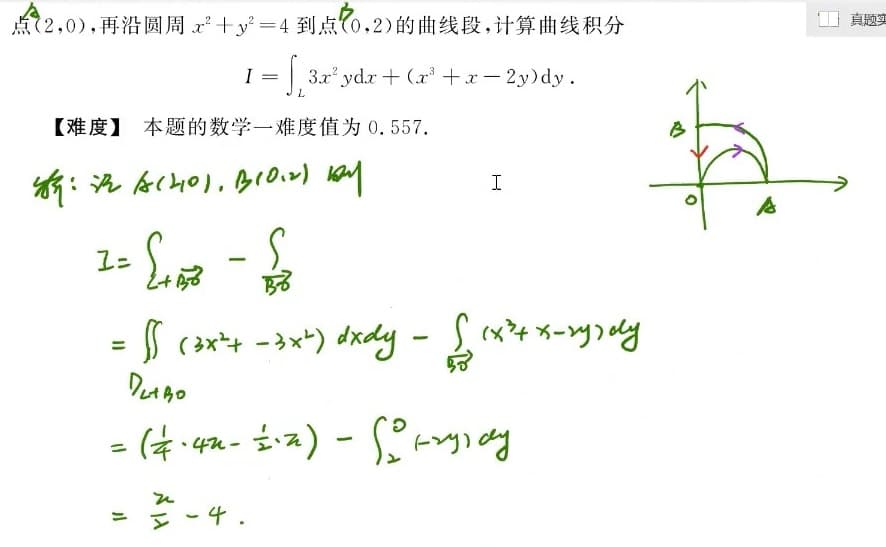 点(2,0),再沿圆周 x²+y²=4 到点(0,2)的曲线段,计算曲线积分
A B
I=∫_L 3x²ydx+(x³+x-2y)dy.
【难度】 本题的数学一难度值为 0.557.
解:设 A(2,0), B(0,2) 则
I=∫_{L+BO} - ∫_{BO}
=∬_{D_{L+BO}} (3x²+1-3x²) dxdy - ∫_{BO} (x³+x-2y)dy
=(1/4·4π-1/2·π) - ∫_2^0 (-2y)dy
=π/2-4.
B
O
A
真题实